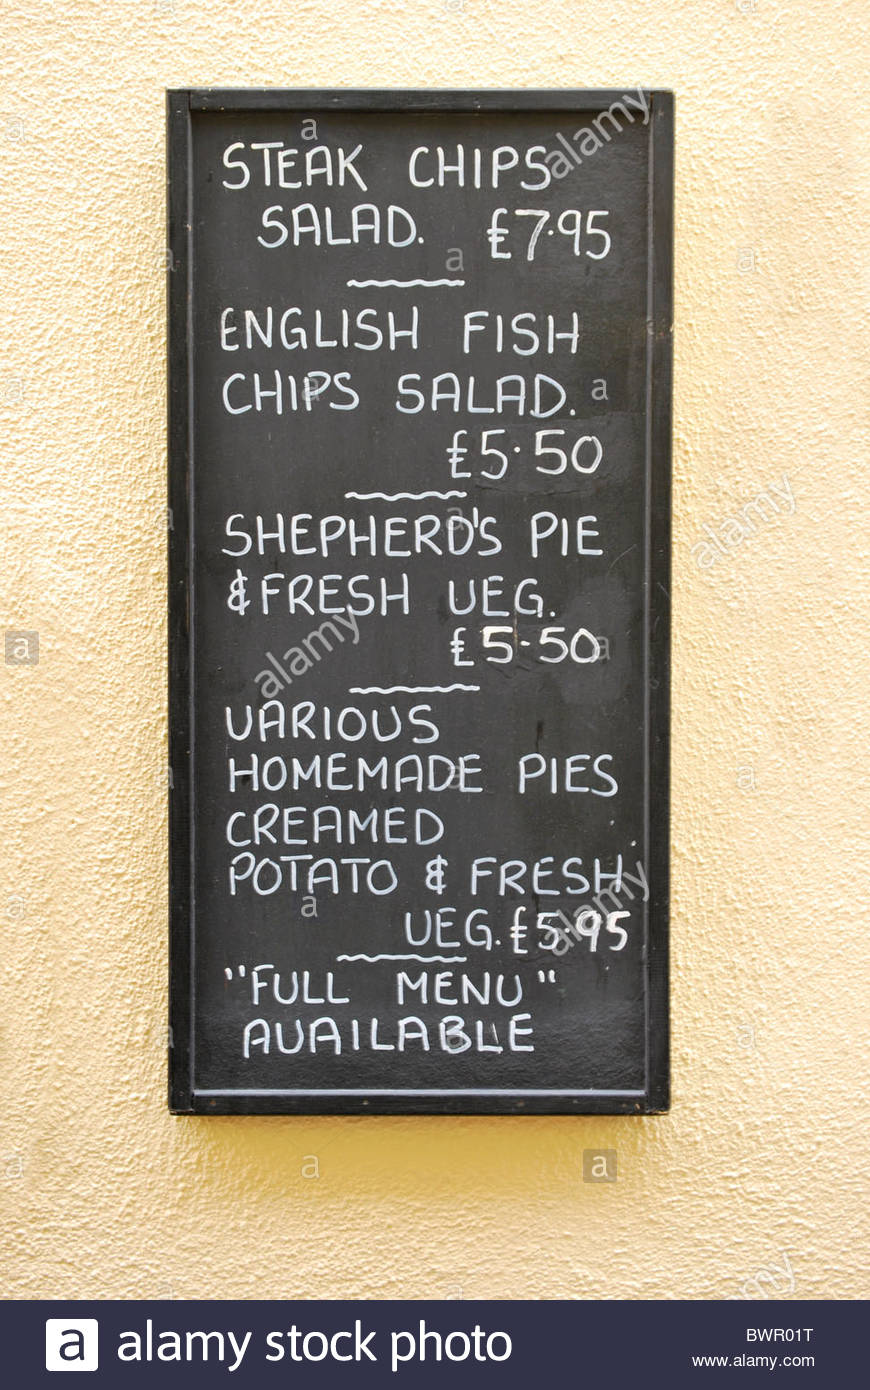 STEAK CHIPS
SALAD. £7.95
ENGLISH FISH
CHIPS SALAD.
£5.50
SHEPHERD'S PIE
& FRESH VEG.
£5-50
VARIOUS
HOMEMADE PIES
CREAMED
POTATO & FRESH
VEG. £5.95
"FULL MENU"
AVAILABLE
alamy
alamy
alamy
alamy
alamy
a alamy stock photo
BWR01T
www.alamy.com